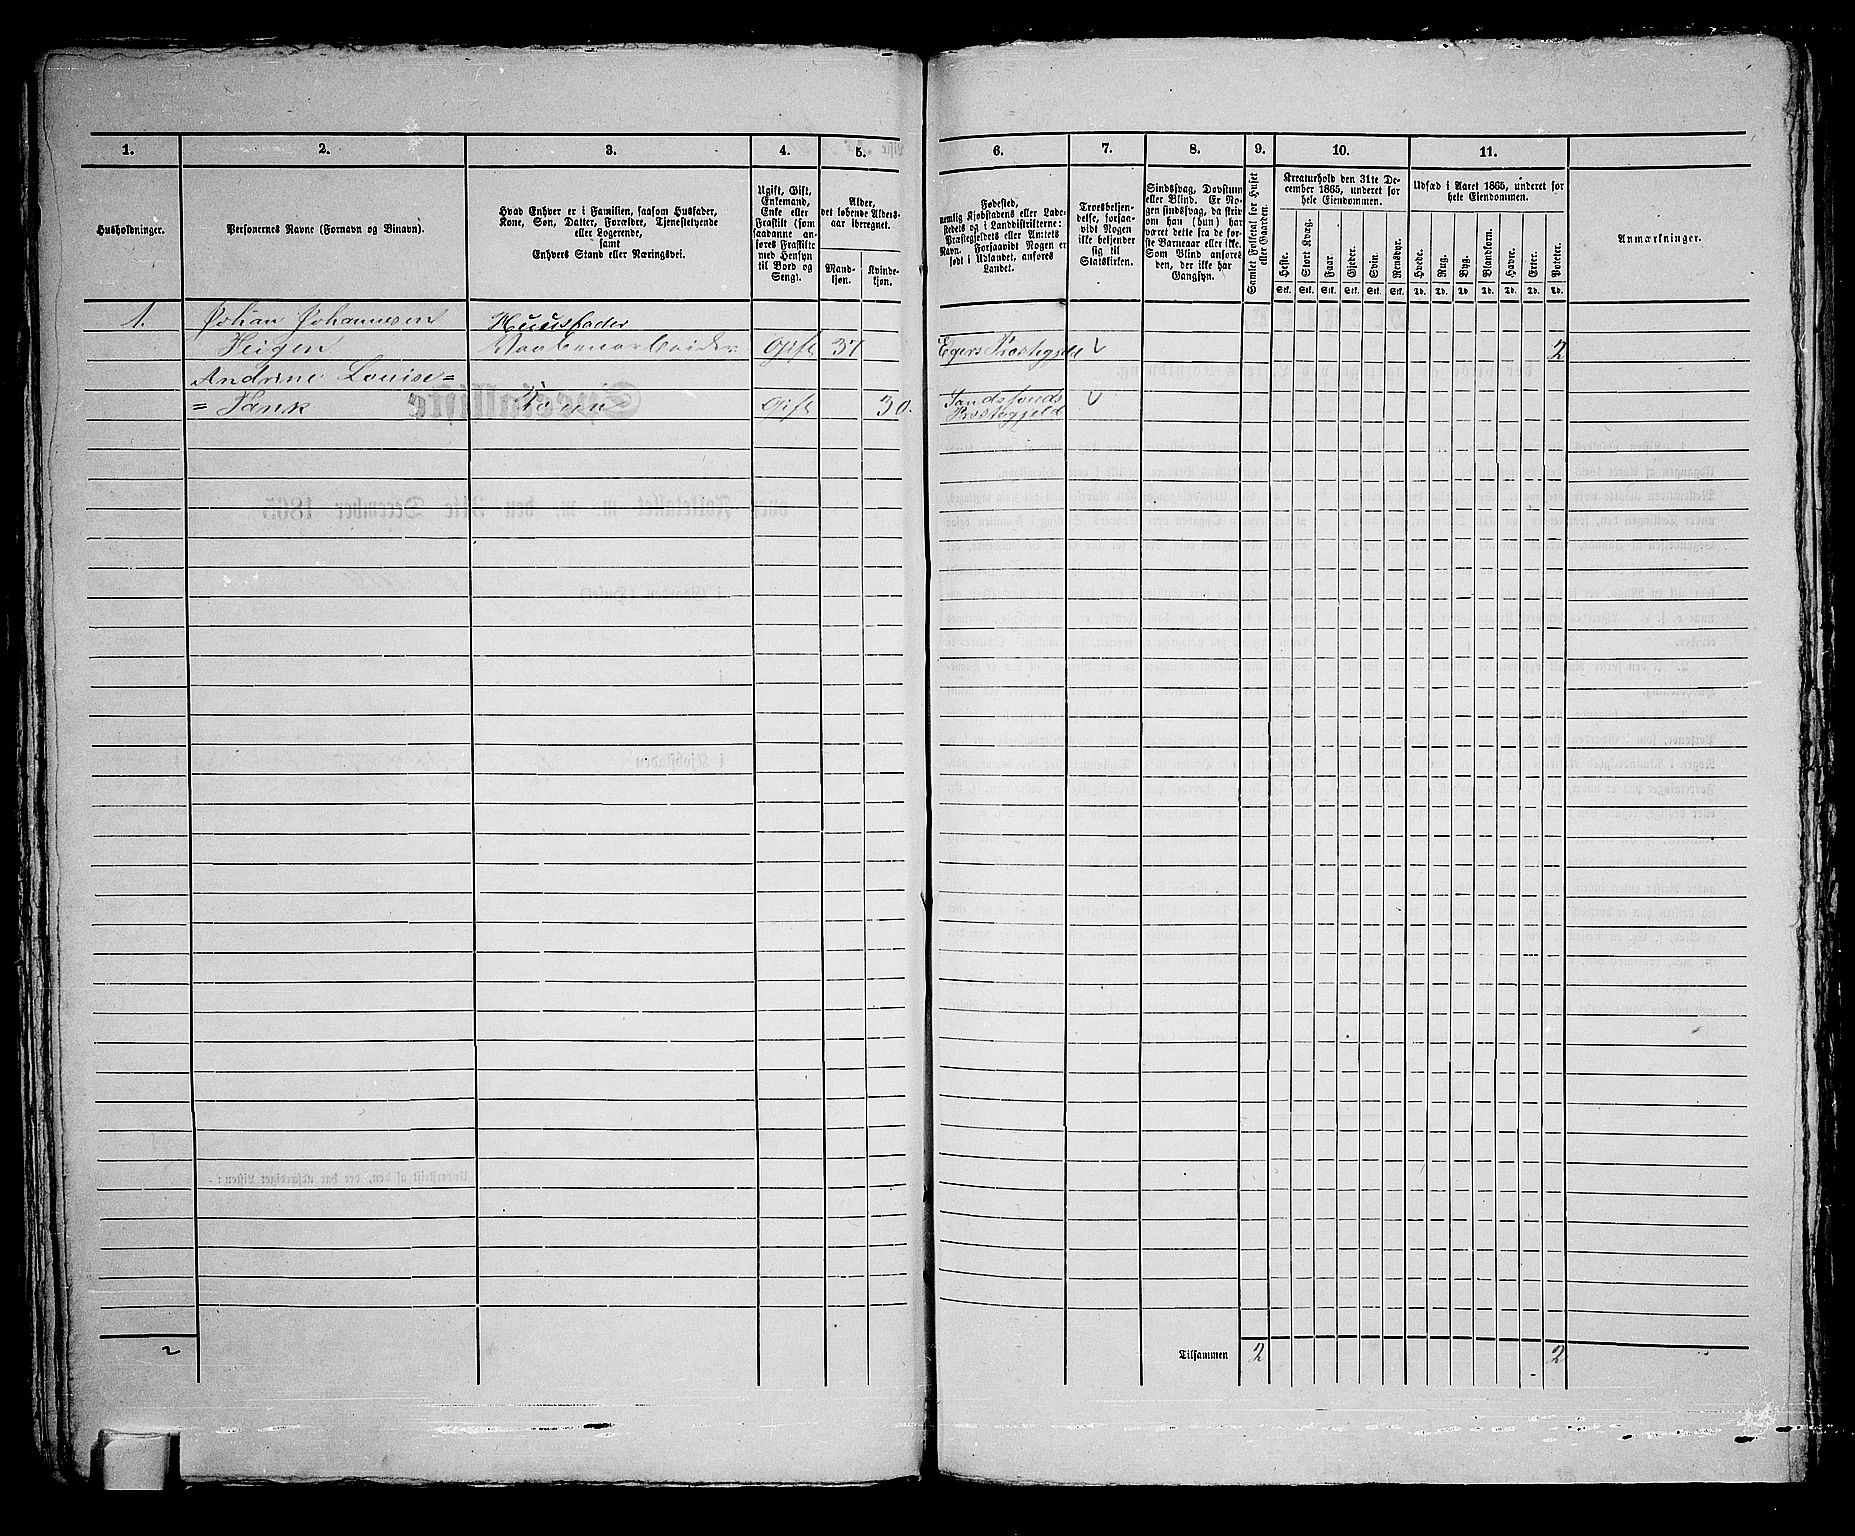 1. 2. 3. 4. 5. 6. 7. 8. 9. 10. 11.
Husholdninger.
Personernes Navne (Fornavn og Binavn).
Hvad Enhver er i Familien, saasom Husfader,
Kone, Søn, Datter, Forældre, Tjenestetyende
eller Logerende,
samt
Enhvers Stand eller Næringsvei.
Ugift, Gift,
Enkemand,
Enke eller
Fraskilt (som
saadanne an-
føres Fraskilte
med Hensyn
til Bord og
Seng).
Alder,
det løbende Alders-
aar iberegnet.
Mand-
kjøn.
Kvinde-
kjøn.
Fødested,
nemlig Kjøbstadens eller Lade-
stedets og i Landdistrikterne:
Præstegjeldets eller Amtets
Navn. Forsaavidt Nogen er
født i Udlandet, anføres
Landet.
Troesbekjen-
delse, forsaa-
vidt Nogen
ikke bekjender
sig til
Statskirken.
Sindssvag, Døvstum
eller Blind. Er No-
gen sindssvag, da skriv
om han (hun) har
været dette fra de før-
ste Barneaar eller ikke.
Som Blind ansøres
den, der ikke har
Gangsyn.
Samlet Folketal for Huset
eller Gaarden.
Kreaturhold den 31te De-
cember 1865, underet for
hele Eiendommen.
Heste. Stort Kvæg. Faar. Gjeder. Svin. Rensdyr.
Stk. Stk. Stk. Stk. Stk. Stk.
Udsæd i Aaret 1865, underet for
hele Eiendommen.
Hvede. Rug. Byg. Blandkorn. Havre. Erter. Poteter.
Td. Td. Td. Td. Td. Td. Td.
Anmærkninger.
1. Johan Johannesen Huusfader
Heigen Vaabenarbeider Gift 37 Egers Præstegjeld 2
Andrine Louise=
=Tank Gift 30. Sandsfonds
Præstegjeld
2 Tilsammen 2 2